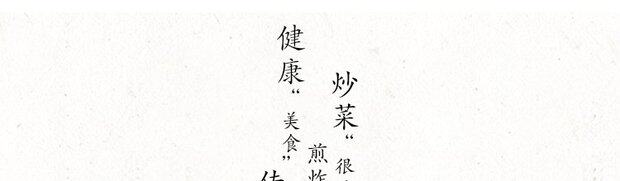 炒菜“很
煎炸
健康“美食”